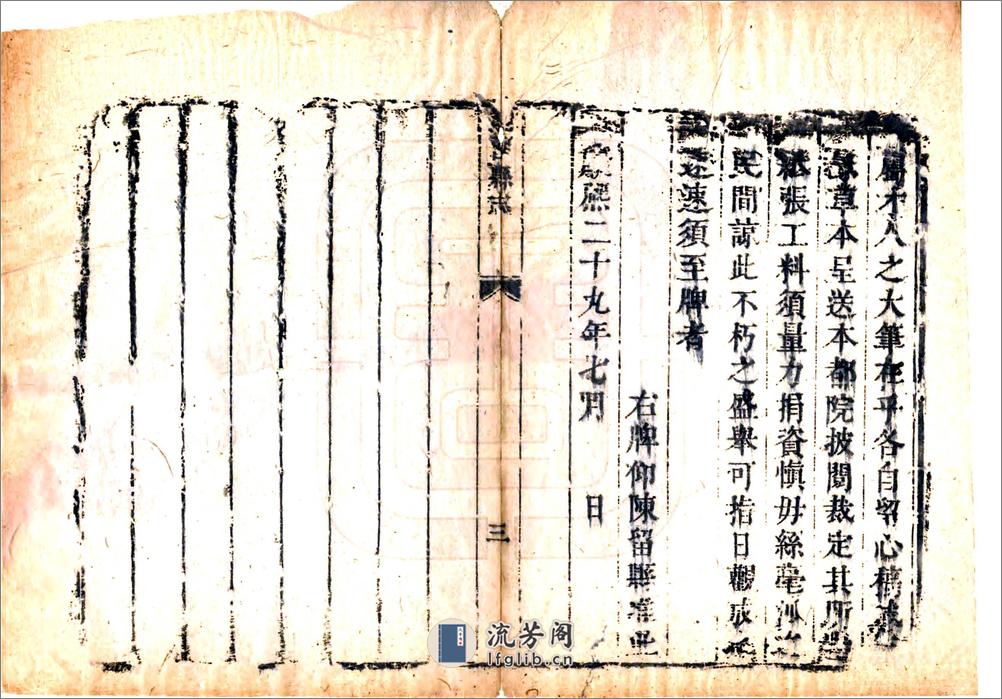 才人之大筆在乎各自留心稿成
草本呈送本都院披閱裁定其所需
紙張工料須量力捐資慎毋絲毫派之
民間諒此不朽之盛舉可指日觀成
速速須至牌者
右牌仰陳留縣准此
康熙二十九年七月 日
縣志
三
流芳阁
lfglib.cn